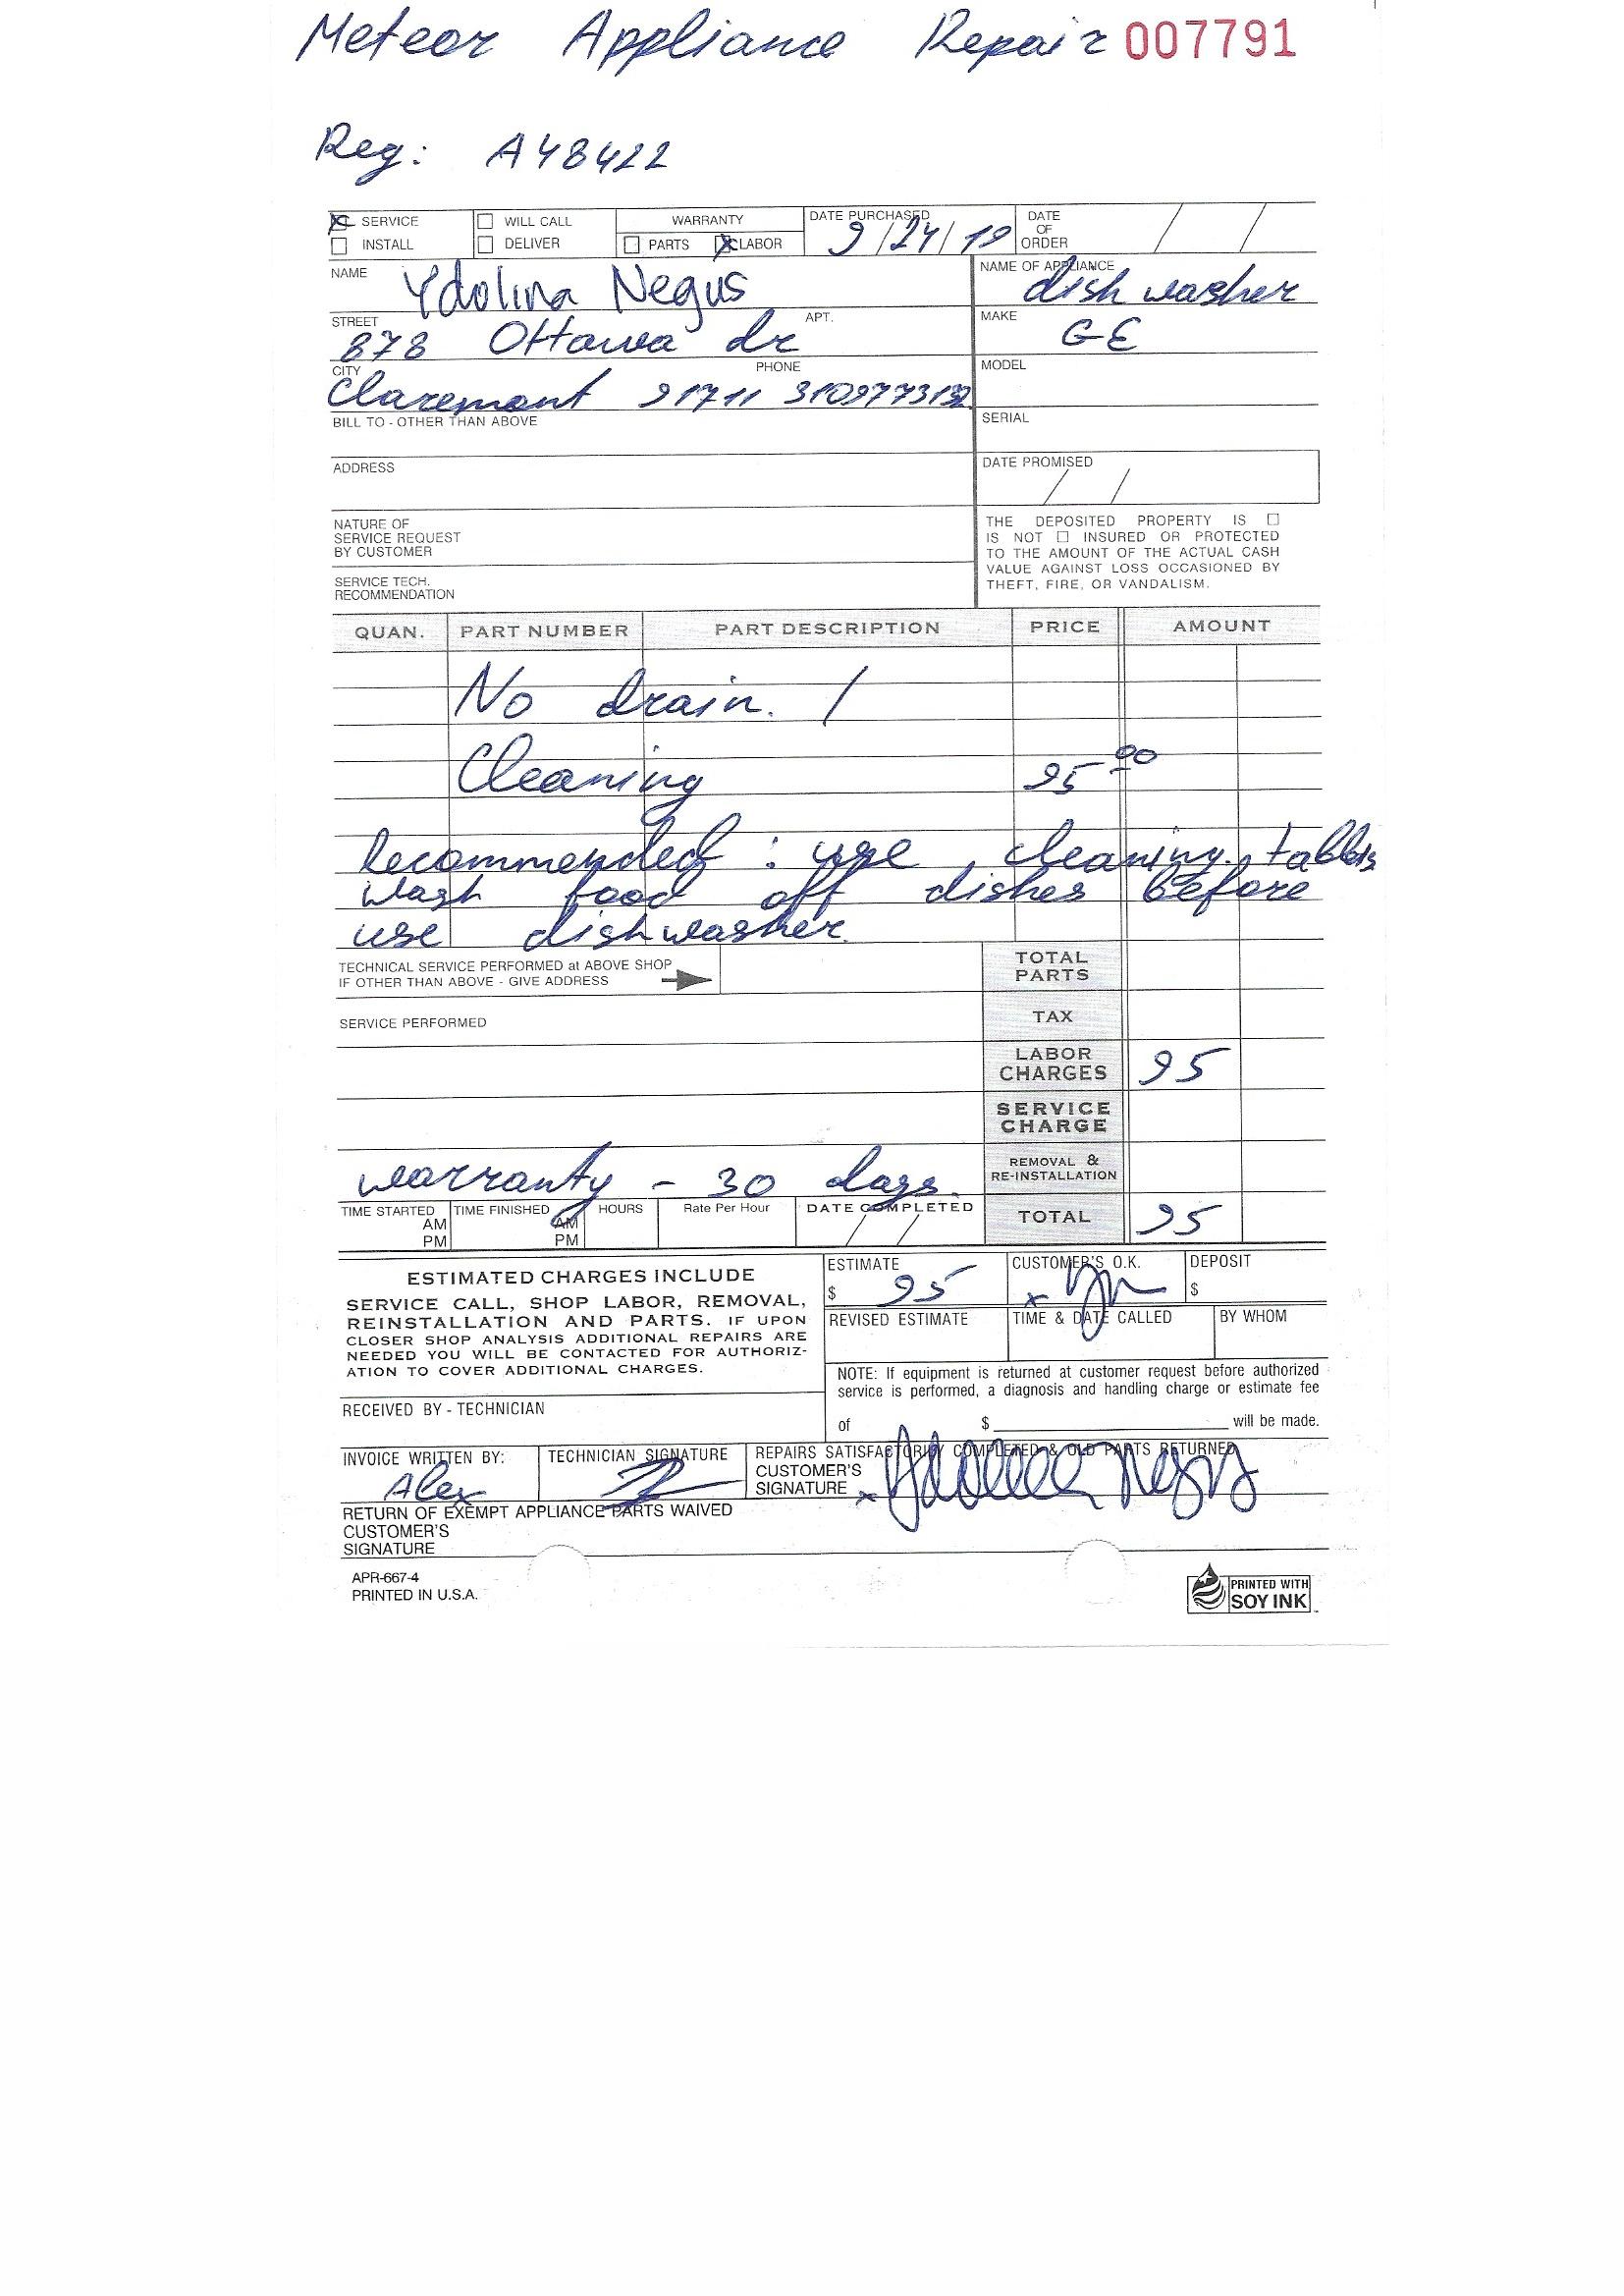 Meteor Appliance Repair 007791
Reg: A48422
SERVICE WILL CALL WARRANTY DATE PURCHASED 9/24/19 DATE OF ORDER / /
INSTALL DELIVER PARTS LABOR
NAME Ydolina Negus NAME OF APPLIANCE dish washer
STREET 878 Ottawa dr APT. MAKE GE
CITY Claremont 91711 PHONE 3109773132 MODEL
BILL TO - OTHER THAN ABOVE SERIAL
ADDRESS DATE PROMISED / /
NATURE OF
SERVICE REQUEST
BY CUSTOMER
SERVICE TECH.
RECOMMENDATION
THE DEPOSITED PROPERTY IS
IS NOT INSURED OR PROTECTED
TO THE AMOUNT OF THE ACTUAL CASH
VALUE AGAINST LOSS OCCASIONED BY
THEFT, FIRE, OR VANDALISM.
QUAN. PART NUMBER PART DESCRIPTION PRICE AMOUNT
No drain. /
Cleaning 95 00
Recommended : use cleaning tablets
wash food off dishes before
use dishwasher.
TECHNICAL SERVICE PERFORMED at ABOVE SHOP
IF OTHER THAN ABOVE - GIVE ADDRESS
TOTAL PARTS
SERVICE PERFORMED
TAX
LABOR CHARGES 95
SERVICE CHARGE
warranty - 30 days.
REMOVAL & RE-INSTALLATION
TIME STARTED AM PM TIME FINISHED AM PM HOURS Rate Per Hour DATE COMPLETED / / TOTAL 95
ESTIMATED CHARGES INCLUDE
SERVICE CALL, SHOP LABOR, REMOVAL,
REINSTALLATION AND PARTS. IF UPON
CLOSER SHOP ANALYSIS ADDITIONAL REPAIRS ARE
NEEDED YOU WILL BE CONTACTED FOR AUTHORIZ-
ATION TO COVER ADDITIONAL CHARGES.
ESTIMATE $ 95 CUSTOMER'S O.K. x DEPOSIT $
REVISED ESTIMATE TIME & DATE CALLED BY WHOM
NOTE: If equipment is returned at customer request before authorized
service is performed, a diagnosis and handling charge or estimate fee
of $ will be made.
RECEIVED BY - TECHNICIAN
INVOICE WRITTEN BY: Alex TECHNICIAN SIGNATURE REPAIRS SATISFACTORILY COMPLETED & OLD PARTS RETURNED
CUSTOMER'S
SIGNATURE x Ydolina Negus
RETURN OF EXEMPT APPLIANCE PARTS WAIVED
CUSTOMER'S
SIGNATURE
APR-667-4
PRINTED IN U.S.A.
PRINTED WITH
SOY INK